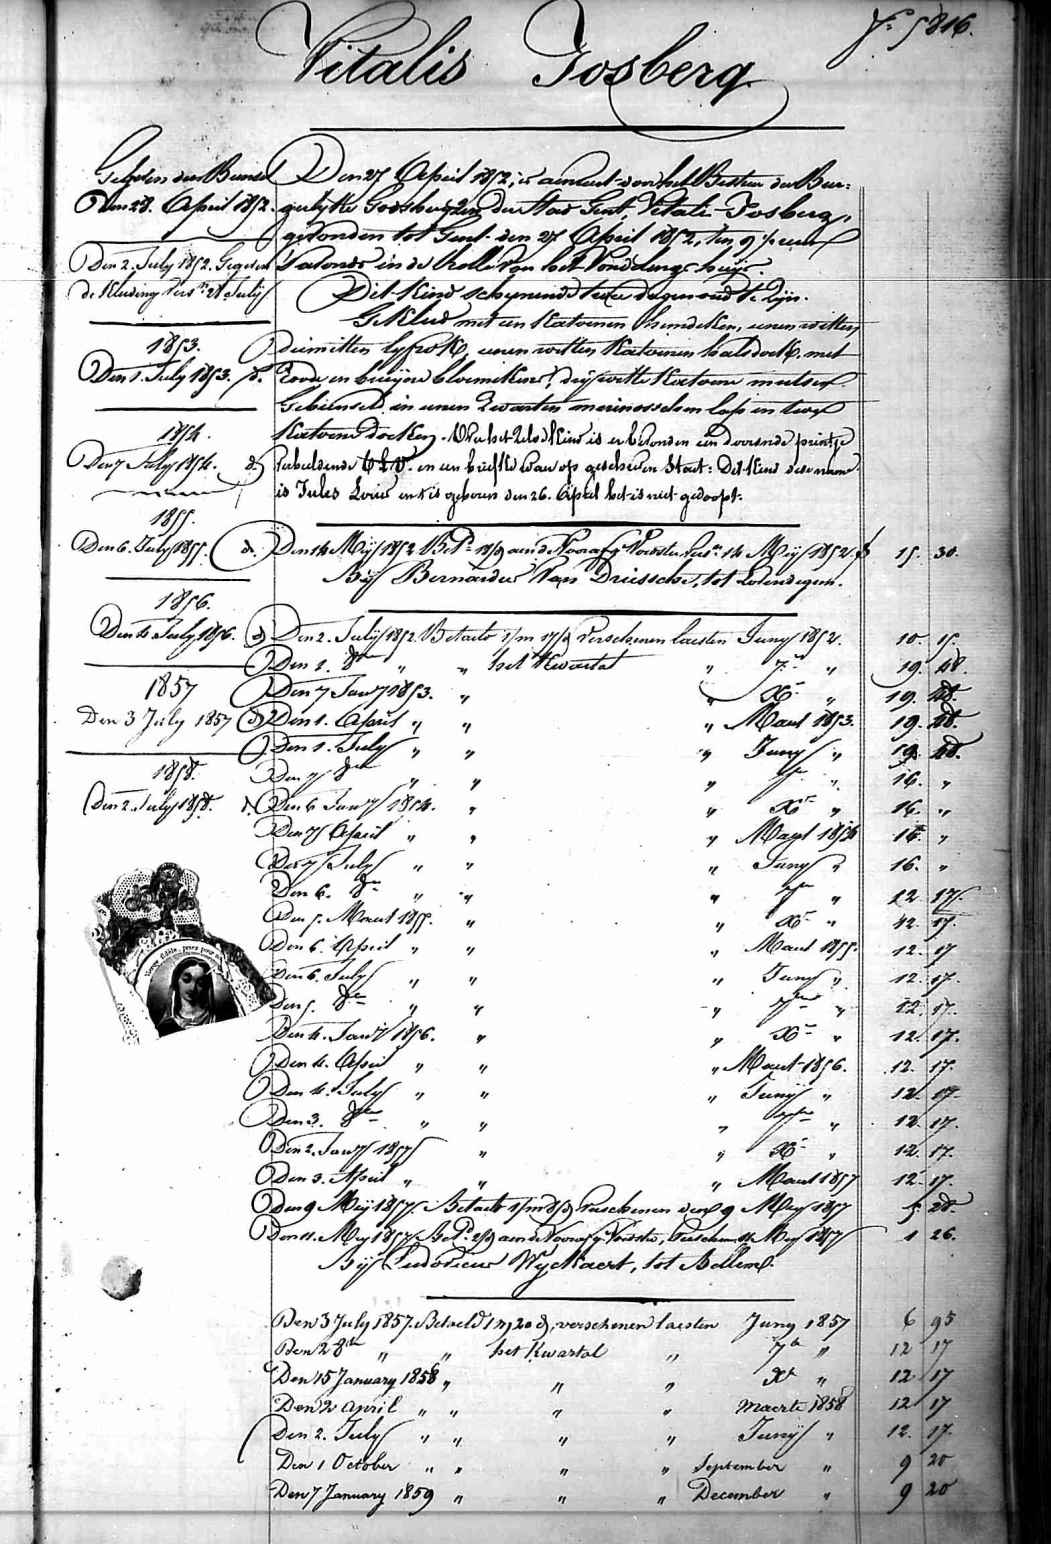 Fº 5816.
Vitalis Fosberg
Den 27 April 1852, is aenveerd door het Bestuer der Bur-
gerlyke Godshuyzen der Stad Gent, Vitalis Fosberg,
gevonden tot Gent den 27 April 1852, ten 9 ½ uren
s'avonds in de Rolle van het Vondelings huys.
Dit kind schynende twee dagen oud te zyn.
Gekleed met een Katoenen hemdeken, eenen witten
deimitten lyfrok, eenen witten Katoenen halsdoek met
Roode en bruyne bloemekens, dry witte Katoene mutsen
Gebunseld in eenen Zwarten merinosschen lap en twee
Katoene doeken. Op het zelve Kind is er bevonden een doorsnede printje
verbeeldende O.L.V. en een briefke waer op geschreven Staet: Dit Kind zyn name
is Jules Louis en het is geboren den 26. April het is niet gedoopt.
Den 14 Mey 1852 Betd aen de Voorafg Voedster, vers. 14 Mey 1852 15. 30.
By Bernardus Van Driessche, tot Lovendegem.
Den 2. July 1852. Betaeld 1/m 17/d verschenen laesten Juny 1852. 10. 15.
Den 1. 8ber " " het Kwartal " 7r " 19. 48.
Den 7 Janry 1853. " " Xr " 19. 48.
Den 1. April " " " Maert 1853. 19. 48.
Den 1. July " " " Juny " 19. 48.
Den 7 8ber " " " 7r " 16. "
Den 6 Janry 1854. " " Xr " 16. "
Den 7 April " " " Maert 1854 16. "
Den 7 July " " " Juny " 16. "
Den 6. 8ber " " " 7r " 12 17.
Den 5. Maert 1855. " " Xr " 12. 17.
Den 6. April " " " Maert 1855. 12. 17
Den 6. July " " " Juny " 12. 17.
Den 5. 8ber " " " 7ber " 12. 17.
Den 4. Janry 1856. " " Xr " 12. 17.
Den 4. April " " " Maert 1856. 12. 17.
Den 4. July " " " Juny " 12. 17.
Den 3. 8ber " " " 7ber " 12. 17.
Den 2. Janry 1857 " " Xr " 12. 17.
Den 3. April " " " Maert 1857 12. 17.
Den 9 Mey 1857. Betaeld 1/m 8/d verschenen den 9 Mey 1857 5. 28.
Den 11. Mey 1857. Betd 2/d aen de Voorafg Voedster, verschenen 11 Mey 1857 1 26.
By Ludovicus Wyckaert, tot Bellem.
Den 3 July 1857. Betaeld 1 m 20 d, verschenen laesten Juny 1857 6 95
Den 2 8ber " " het Kwartal " 7b " 12 17
Den 15 January 1858 " " " Xb " 12 17
Den 2 April " " " " Maerte 1858 12 17
Den 2. July " " " " Juny " 12. 17.
Den 1 October " " " " September " 9 20
Den 7 January 1859 " " " December " 9 20
Den 28. April 1852.
Den 2. July 1852. Gegeven
de Kleding Vers. 21 July
1853.
Den 1. July 1853. d.
1854.
Den 7 July 1854. d.
1855.
Den 6. July 1855. d.
1856.
Den 4 July 1856. d.
1857
Den 3 July 1857 d.
1858.
Den 2. July 1858. d.